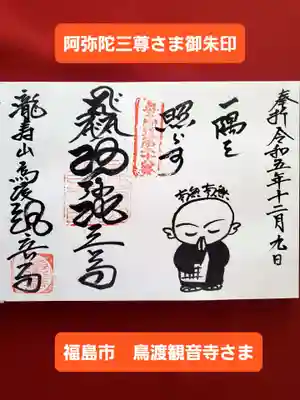 阿弥陀三尊さま御朱印
奉拝 令和五年十二月九日
一隅を
照らす
瀧寿山鳥渡観音寺
福島市 鳥渡観音寺さま